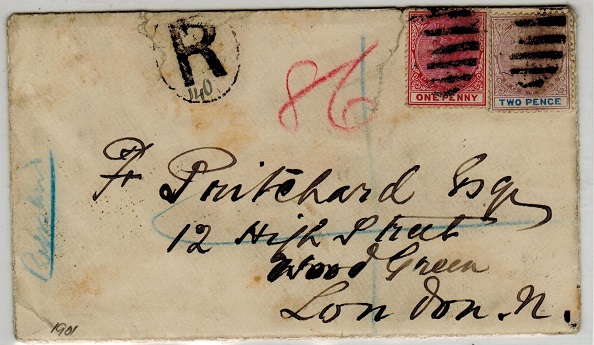 R
140
86
ONE PENNY
TWO PENCE
Fr Pritchard Esq
12 High Street
Wood Green
London. N.
1901